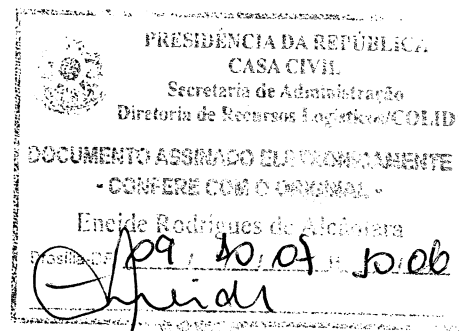 PRESIDÊNCIA DA REPÚBLICA
CASA CIVIL
Secretaria de Administração
Diretoria de Recursos Logísticos/COLID
DOCUMENTO ASSINADO ELETRONICAMENTE
- CONFERE COM O ORIGINAL -
Eneide Rodrigues de Alcântara
Brasília-DF 09